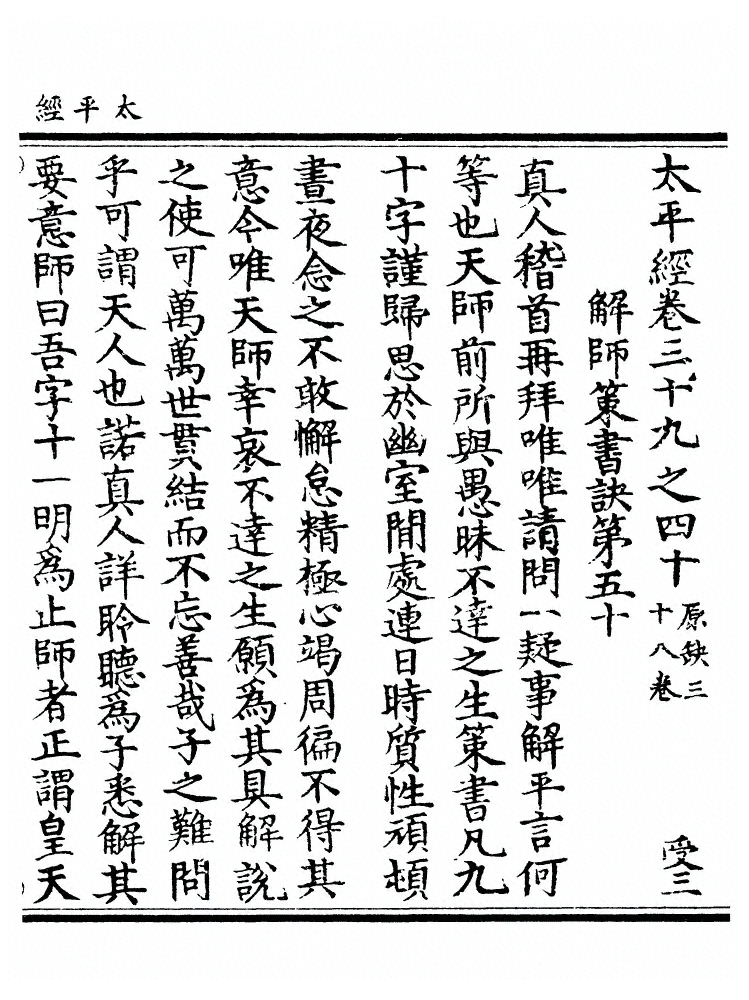 太平經
太平經卷三十九之四十 原缺三十八卷 受三
解師策書訣第五十
真人稽首再拜唯唯請問一疑事解平言何
等也天師前所與愚昧不達之生策書凡九
十字謹歸思於幽室閒處連日時質性頑頓
晝夜念之不敢懈怠精極心竭周徧不得其
意今唯天師幸哀不達之生願為其具解說
之使可萬萬世貫結而不忘善哉子之難問
乎可謂天人也諾真人詳聆聽為子悉解其
要意師曰吾字十一明為止師者正謂皇天